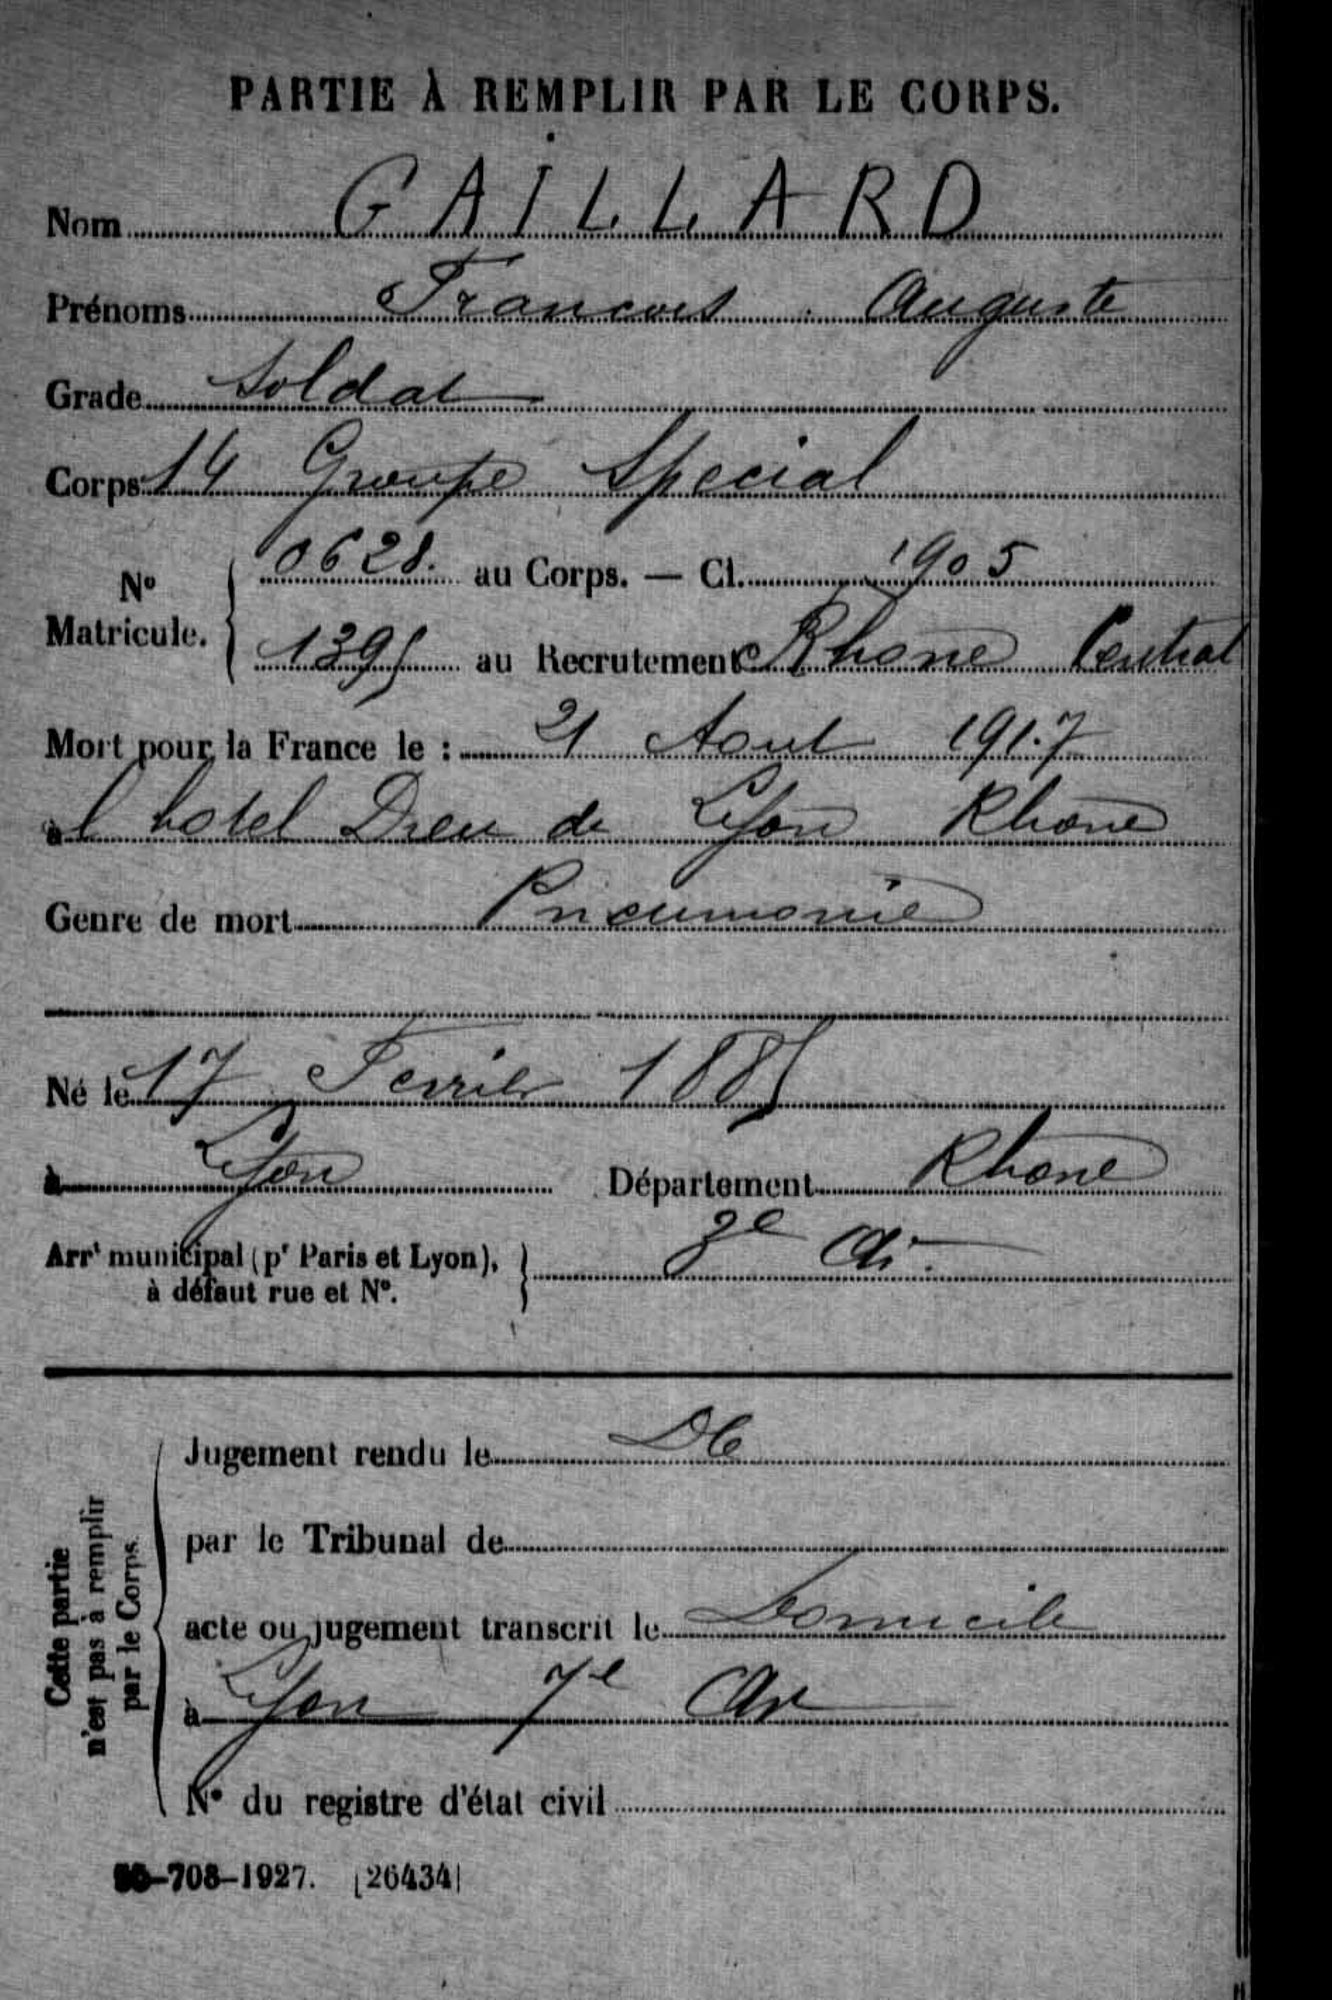 PARTIE À REMPLIR PAR LE CORPS.
Nom GAILLARD
Prénoms Francois Auguste
Grade Soldat
Corps 14 Groupe Special
N° Matricule. 0628. au Corps. — Cl. 1905
1395 au Recrutement Rhone Central
Mort pour la France le : 21 Aout 1917
à l hotel Dieu de Lyon Rhone
Genre de mort Pneumonie
Né le 17 Fevrier 1885
à Lyon Département Rhone
Arrt municipal (pr Paris et Lyon), 3e Ar.
à défaut rue et N°.
Cette partie
n'est pas à remplir
par le Corps.
Jugement rendu le
par le Tribunal de
acte ou jugement transcrit le Domicile
à Lyon 7e Ar
N° du registre d'état civil
-708-1927. [26434]